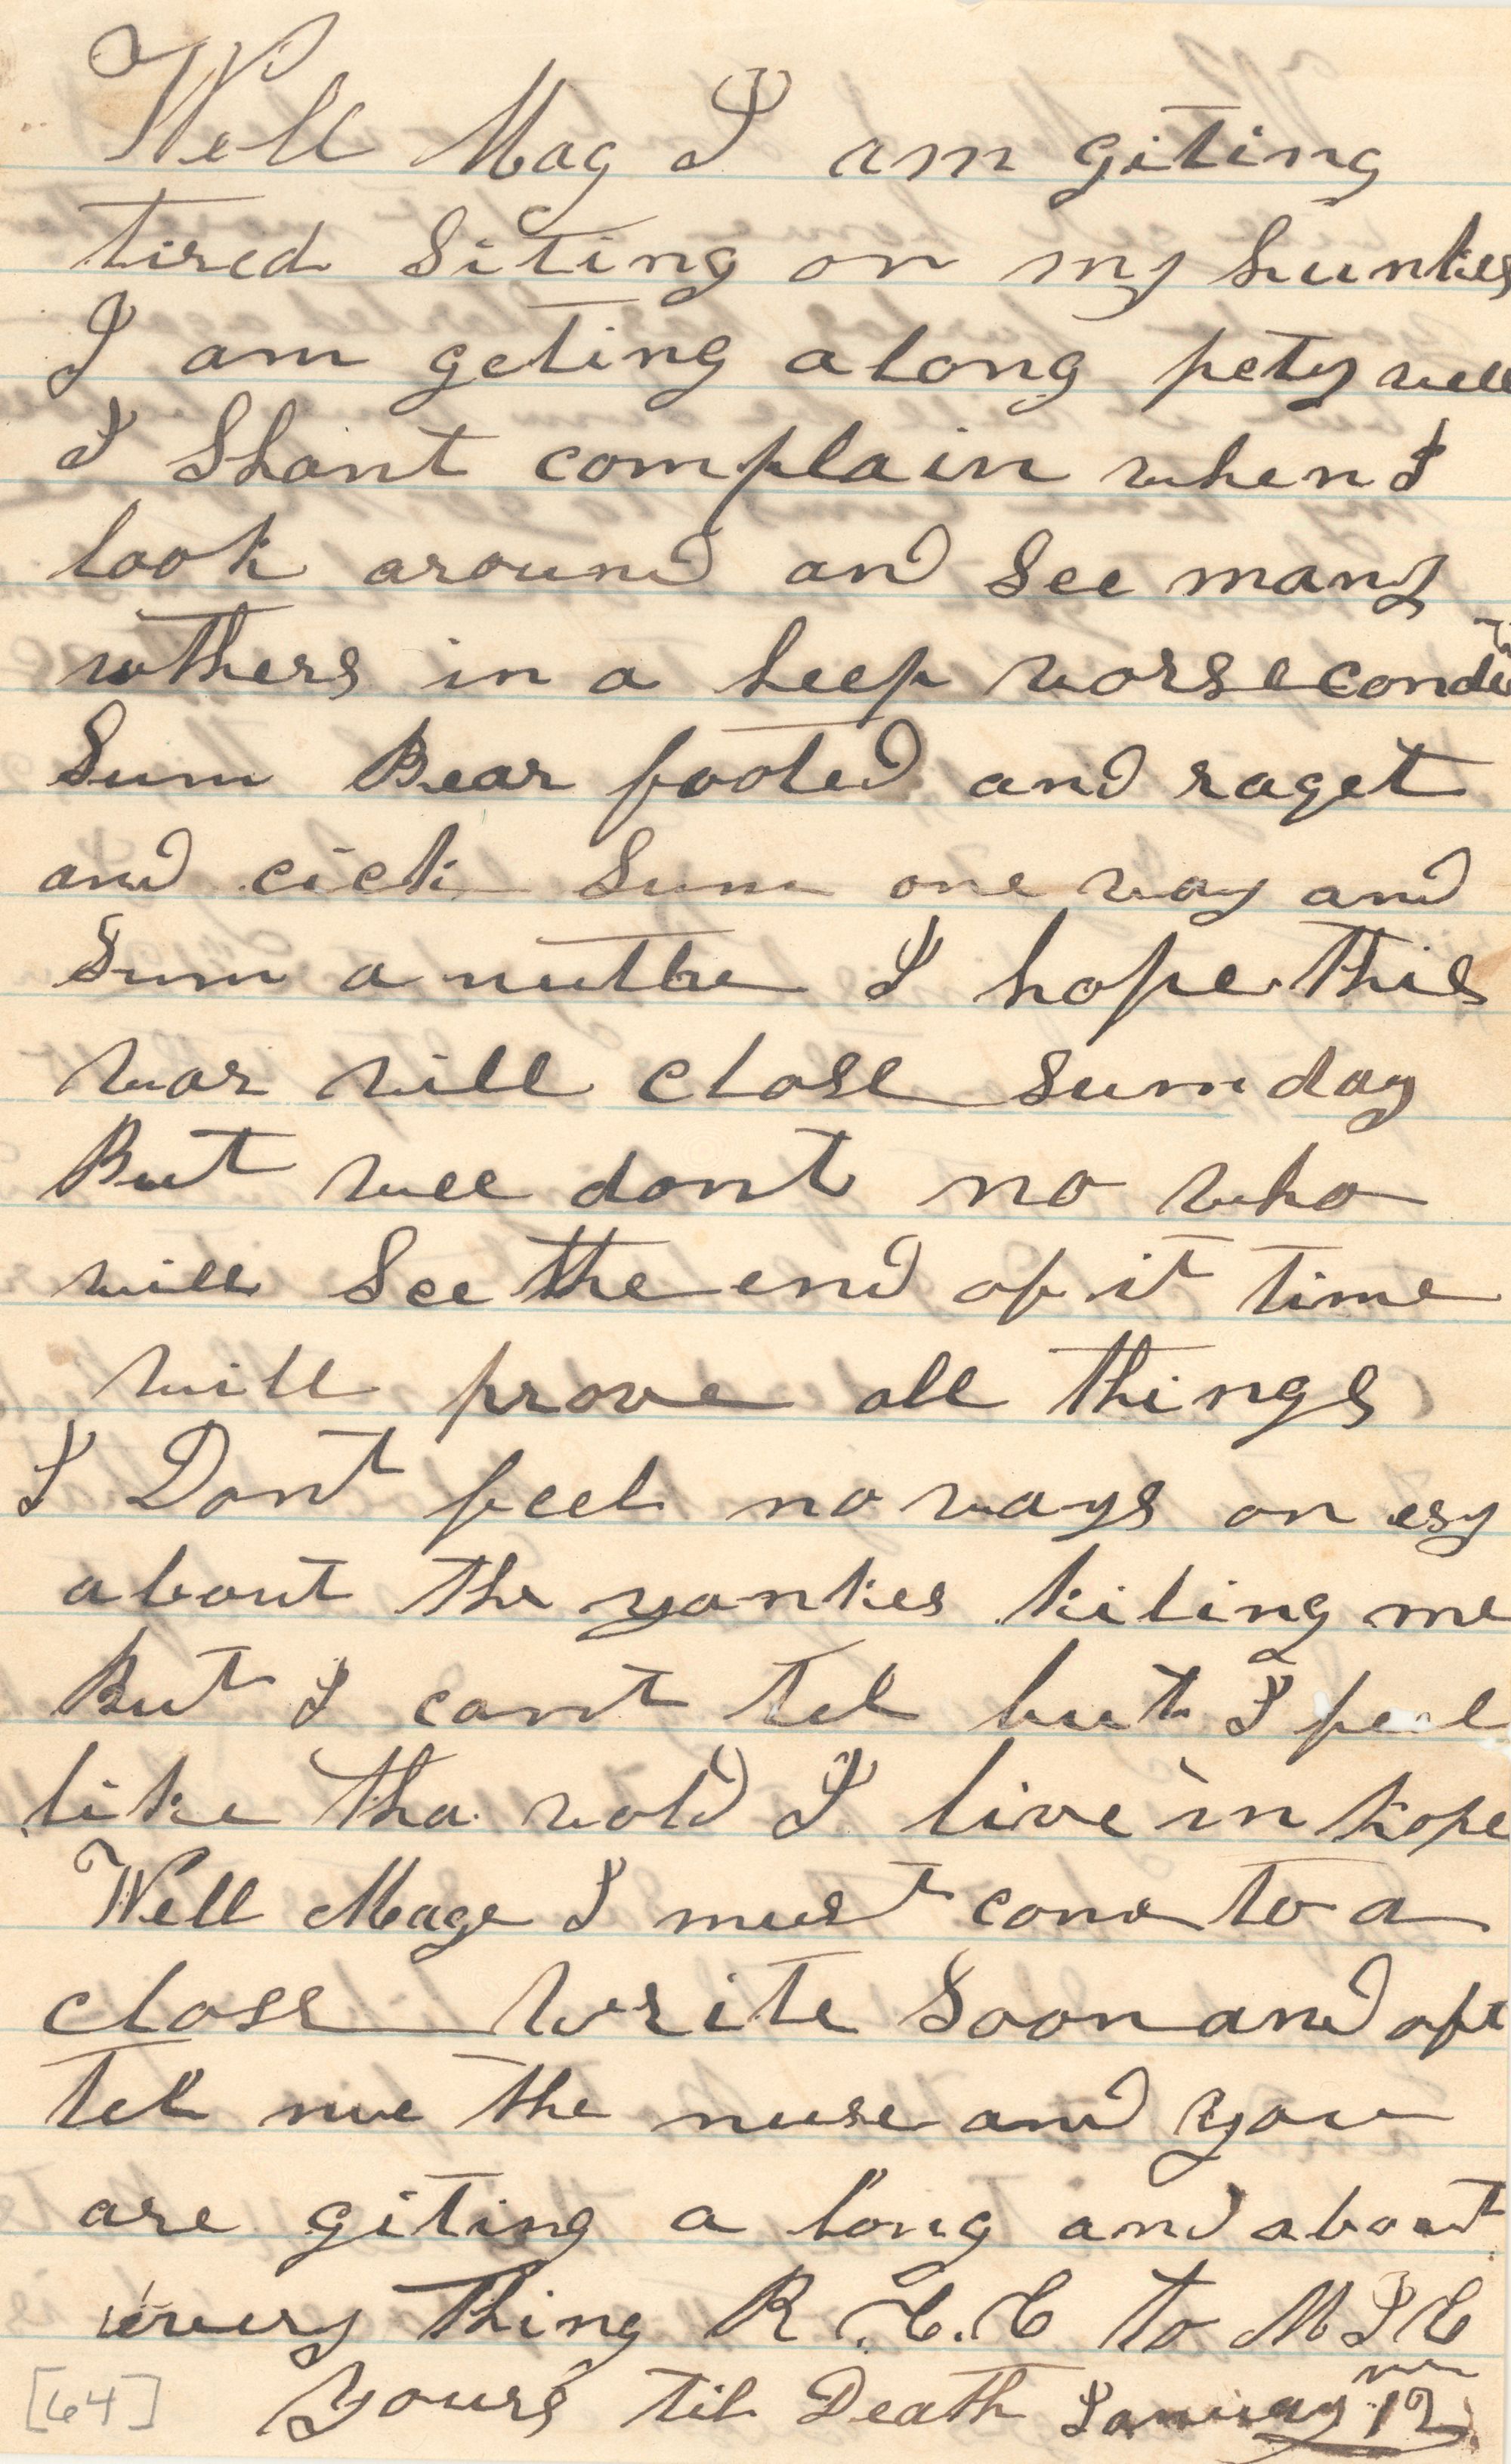 Well Mag I am giting
tired siting on my hunkes
I am geting along pety well
I Shant complain when I
look around and see many
uthers in a heep worse conde
Sum Bear footed and raget
and cick Sum one way and
Sum a nuthe I hope this
war will close sum day
But wee dont no who
will See the end of it time
will prove all things
I Dont feel no ways on esy
about the yankes kiling me
But I cant tel but I feel
like tha wold I live in hope
Well Mage I must come to a
close write Soon and oft
tel me the nuse and you
are giting a long and about
every thing R. C. C to M I C
yours til Death January 12
[64]